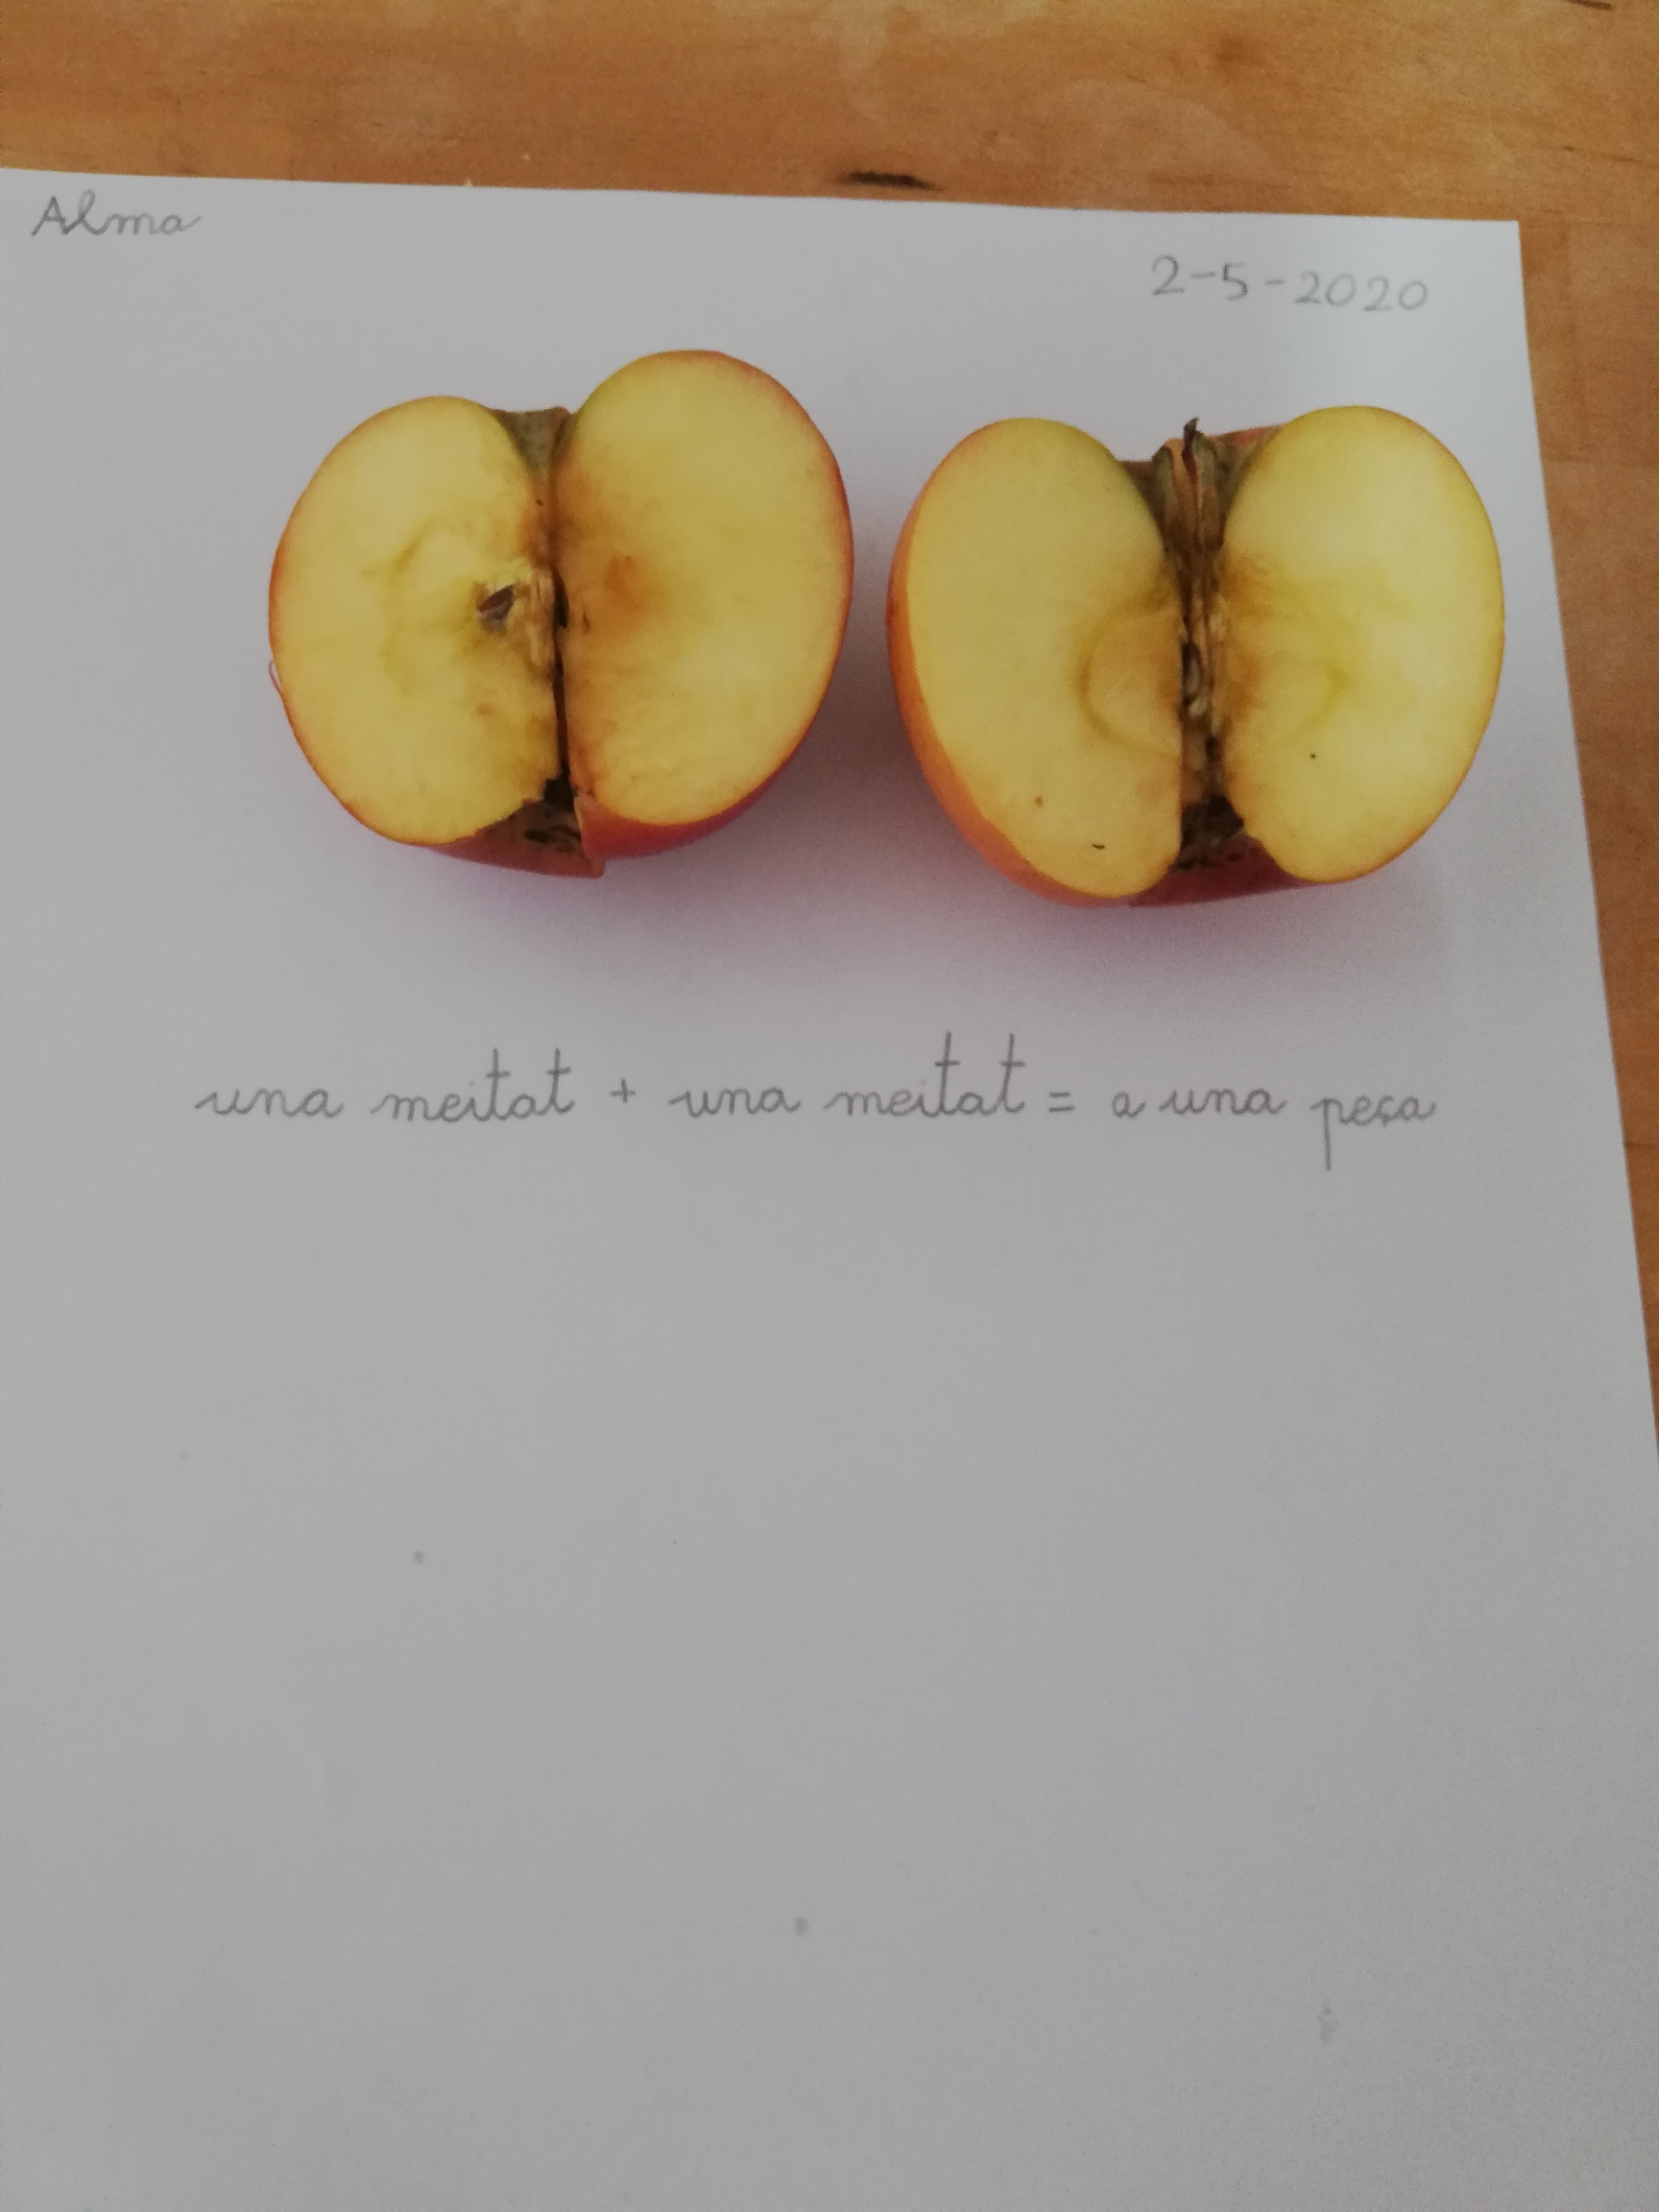 Alma
2-5-2020
una meitat + una meitat = a una peça